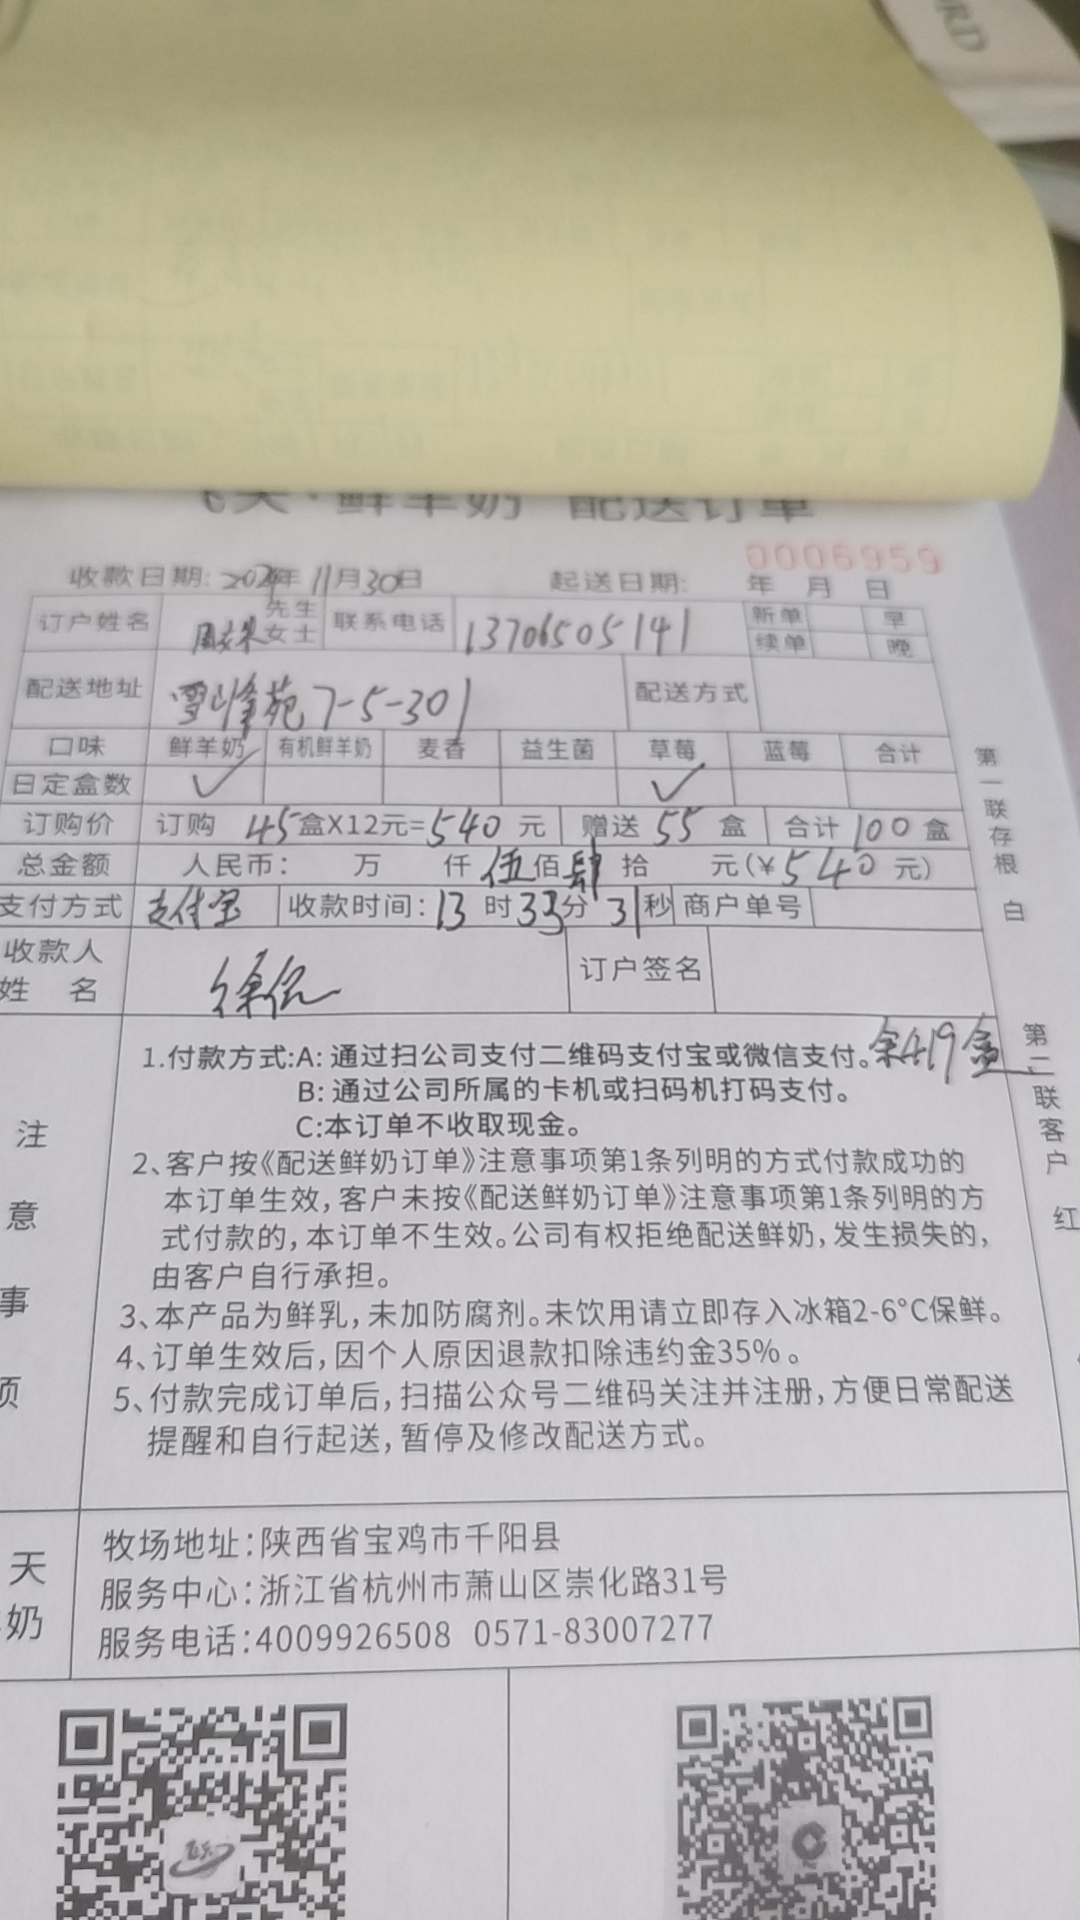 ·鲜羊奶 配送订单
0006959
收款日期: 2024年 11月30日 起送日期: 年 月 日
订户姓名 先生 女士 联系电话 13706505141 新单 早
续单 晚
配送地址 雪峰苑7-5-301 配送方式
口味 鲜羊奶 有机鲜羊奶 麦香 益生菌 草莓 蓝莓 合计
日定盒数 ✓ ✓
订购价 订购 45盒X12元=540元 赠送 55 盒 合计 100 盒
总金额 人民币: 万 仟 伍佰肆拾 元(¥540元)
支付方式 支付宝 收款时间: 13时33分31秒 商户单号
收款人
姓 名 徐 订户签名
余419盒
注意事项
1.付款方式:A: 通过扫公司支付二维码支付宝或微信支付。
B: 通过公司所属的卡机或扫码机打码支付。
C:本订单不收取现金。
2、客户按《配送鲜奶订单》注意事项第1条列明的方式付款成功的
本订单生效,客户未按《配送鲜奶订单》注意事项第1条列明的方
式付款的,本订单不生效。公司有权拒绝配送鲜奶,发生损失的,
由客户自行承担。
3、本产品为鲜乳,未加防腐剂。未饮用请立即存入冰箱2-6°C保鲜。
4、订单生效后,因个人原因退款扣除违约金35%。
5、付款完成订单后,扫描公众号二维码关注并注册,方便日常配送
提醒和自行起送,暂停及修改配送方式。
第一联存根 白
第二联客户 红
天
奶
牧场地址:陕西省宝鸡市千阳县
服务中心:浙江省杭州市萧山区崇化路31号
服务电话:4009926508 0571-83007277